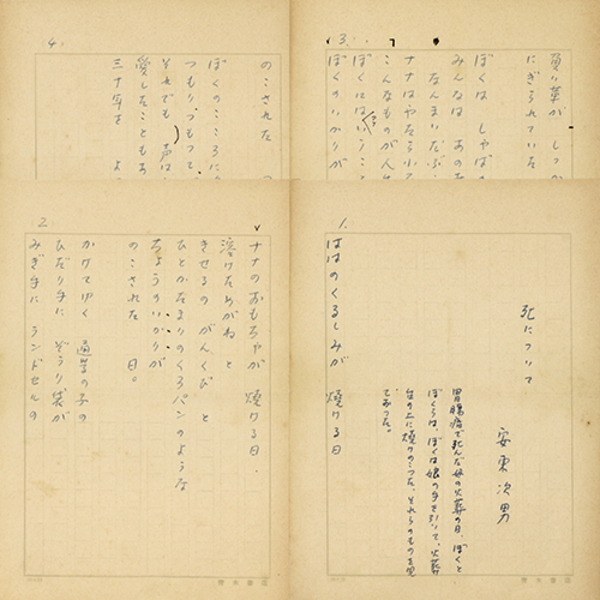 1.
死について
安東次男
胃腸癌で死んだ妹の火葬の日、ぼくと
ぼくらは、ぼくは娘の手を引いて、火葬
台の上に焼けのこった、それらのものを見
ていた。
ははのくるしみが 焼ける日
2.
ナナのおもちゃが 焼ける日、
溶けためがね と
きせるの がんくび と
ひとかたまりのくろパンのような
ちょうのいかりが
のこされた 日。
かけてゆく 通学の子の
ひだり手に ぞうり袋が
みぎ手に ランドセルの
3.
負い革が しっか
にぎられていた
ぼくは しゃばの
みんなは あの
なんまいだぶ
ナナはやたら
こんなものが人
ぼくにはいうこ
ぼくのいかりが
4.
のこされた
ぼくのこころに
つもりつもって
それでも 声は
愛したこともあ
三十年を よ